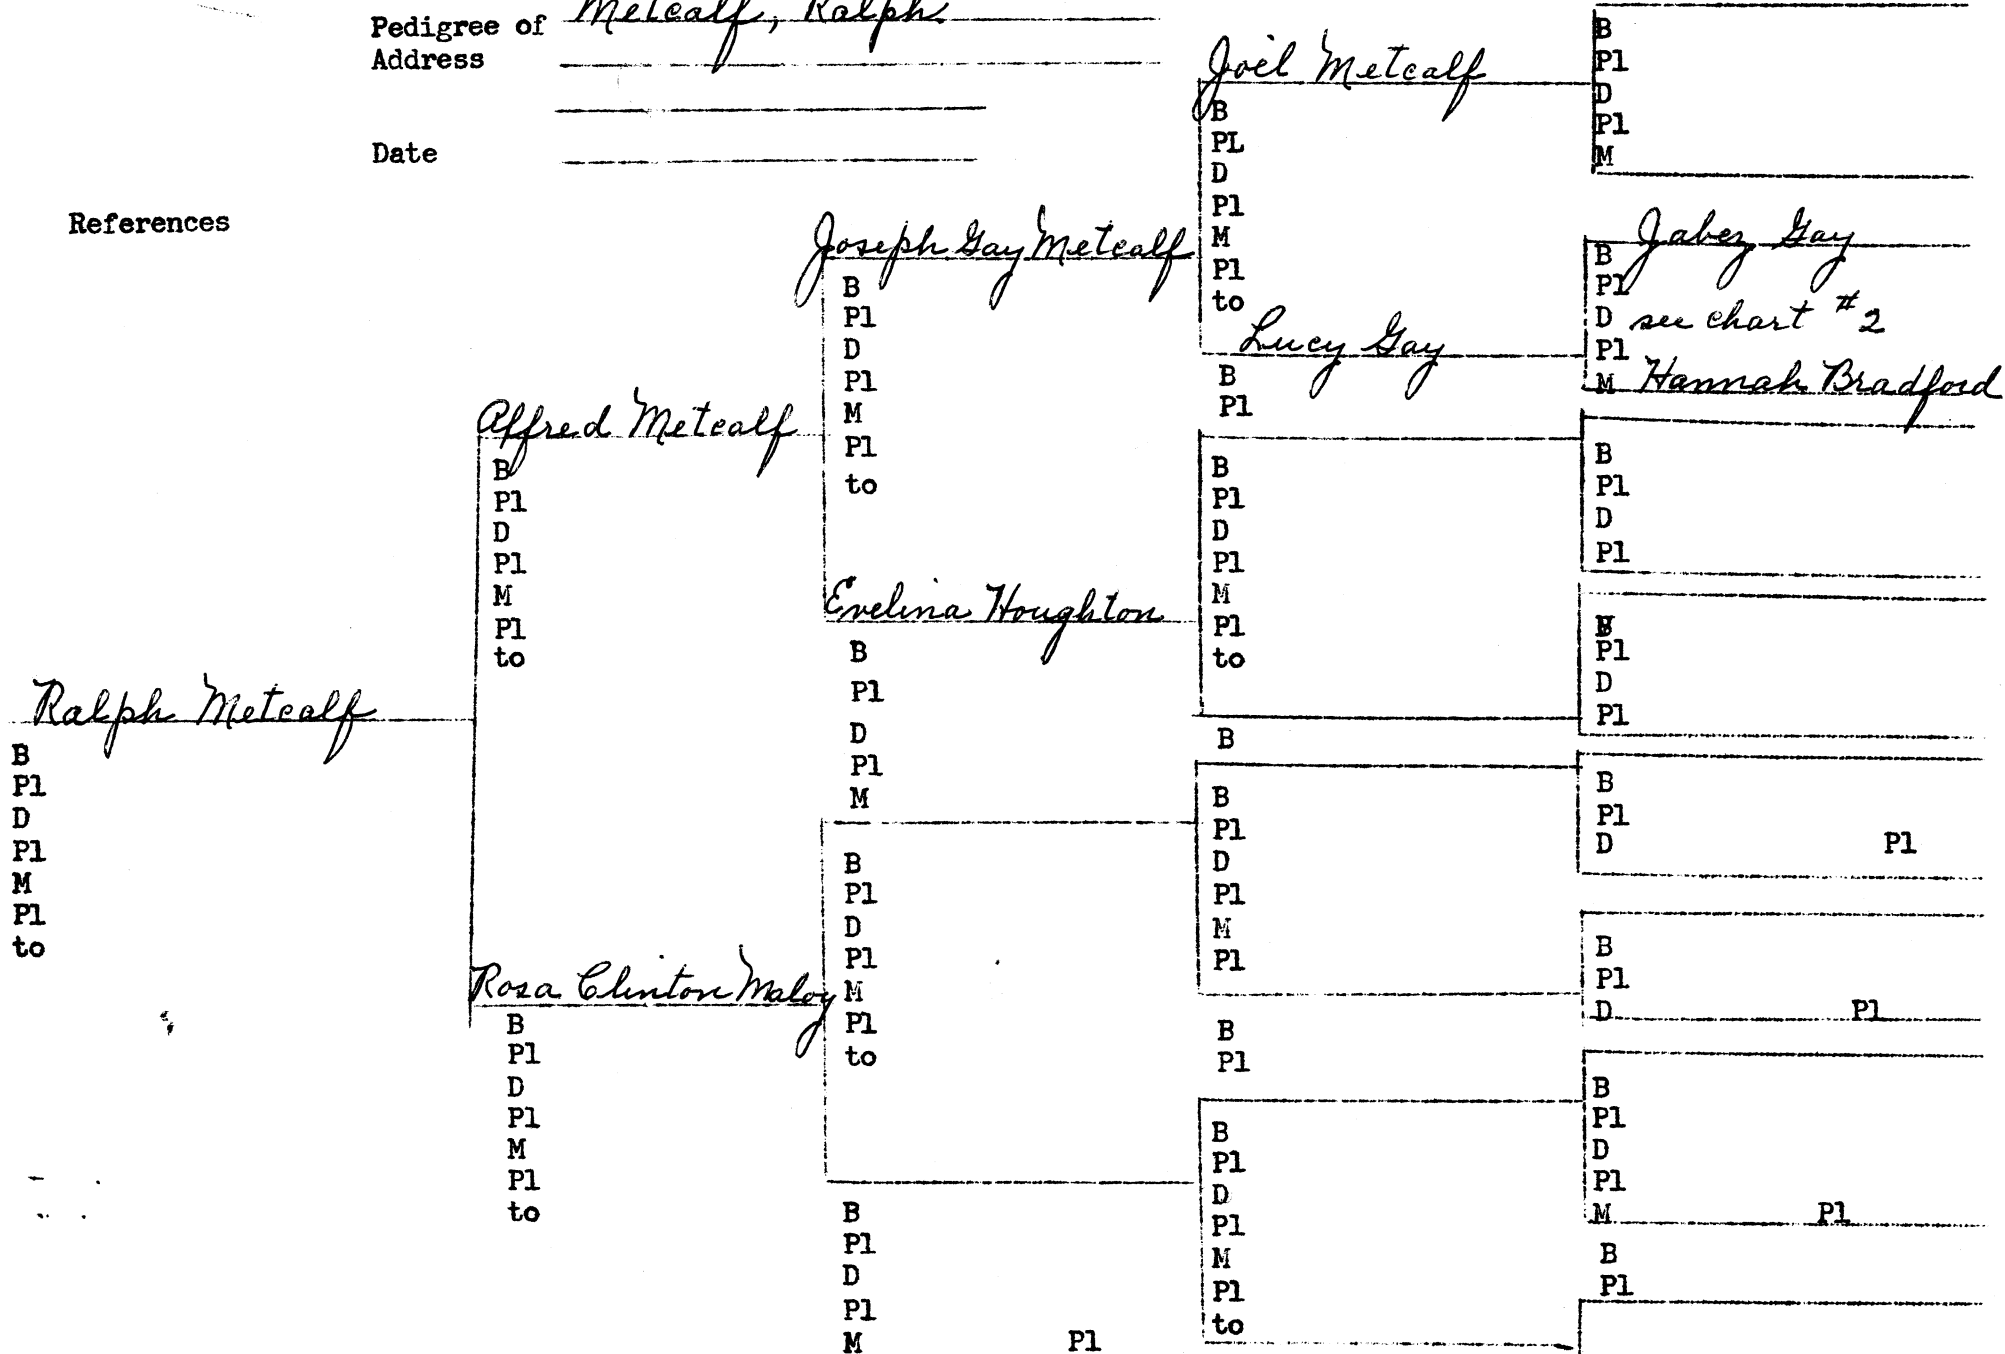 Pedigree of Metcalf, Ralph
Address
Date
References
Ralph Metcalf
B
Pl
D
Pl
M
Pl
to
Alfred Metcalf
B
Pl
D
Pl
M
Pl
to
Rosa Clinton Maloy
B
Pl
D
Pl
M
Pl
to
Joseph Gay Metcalf
B
Pl
D
Pl
M
Pl
to
Evelina Houghton
B
Pl
D
Pl
M
B
Pl
D
Pl
M
Pl
to
B
Pl
D
Pl
M Pl
Joel Metcalf
B
PL
D
Pl
M
Pl
to
Lucy Gay
B
Pl
B
Pl
D
Pl
M
Pl
to
B
B
Pl
D
Pl
M
Pl
B
Pl
B
Pl
D
Pl
M
Pl
to
B
Pl
D
Pl
M
Jabez Gay
B
Pl
D see chart #2
Pl
M Hannah Bradford
B
Pl
D
Pl
Pl
D
Pl
B
Pl
D Pl
B
Pl
D Pl
B
Pl
D
Pl
M Pl
B
Pl